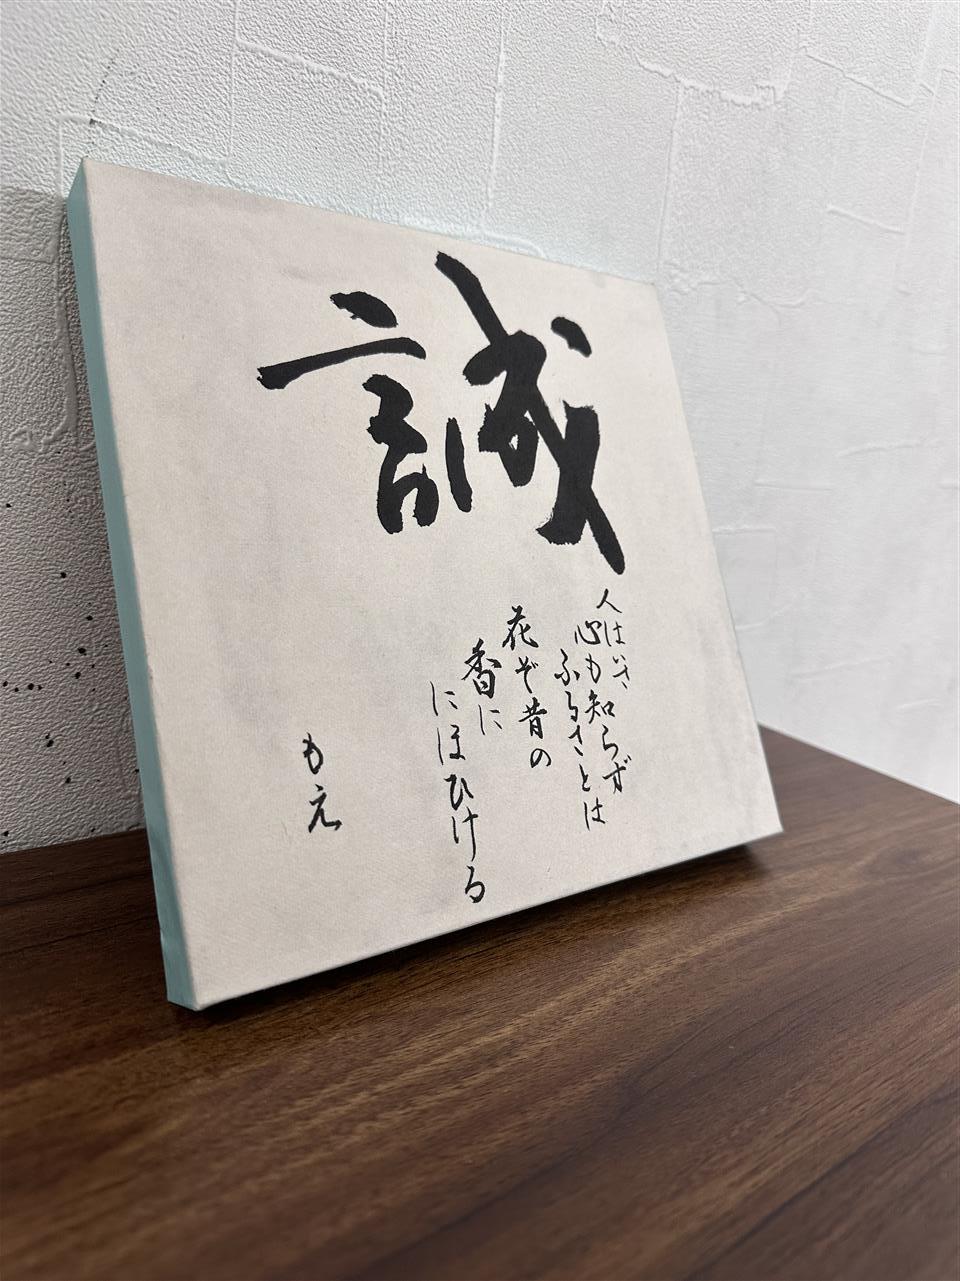 誠
人はいさ
心も知らず
ふるさとは
花ぞ昔の
香に
にほひける
もえ